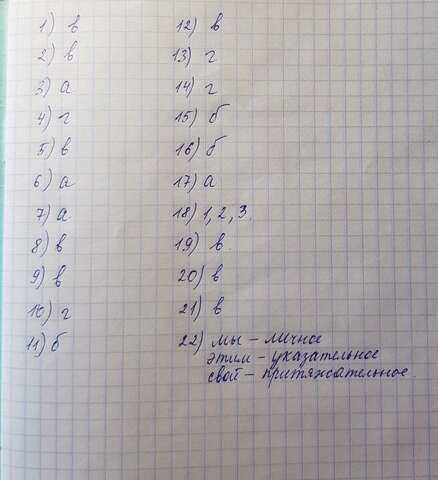 1) в
2) в
3) а
4) г
5) в
6) а
7) а
8) в
9) в
10) г
11) б
12) в
13) г
14) г
15) б
16) б
17) а
18) 1, 2, 3.
19) в.
20) в
21) в
22) мы – личное
этим – указательное
свой – притяжательное.